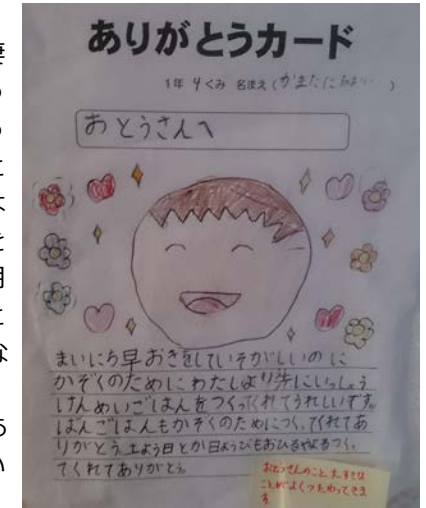 ありがとうカード
1年 4くみ 名まえ(かまたに
おとうさんへ
まいにち早おきをしていそがしいのに
かぞくのためにわたしより先にいっしょう
けんめいごはんをつくってくれてうれしいです。
ばんごはんもかぞくのためにつくってくれてあ
りがとう。土よう日とか日ようびもおひるやよるつくっ
てくれてありがとう。
おとうさんのこと、大すきな
ことがよくつたわってきま
す